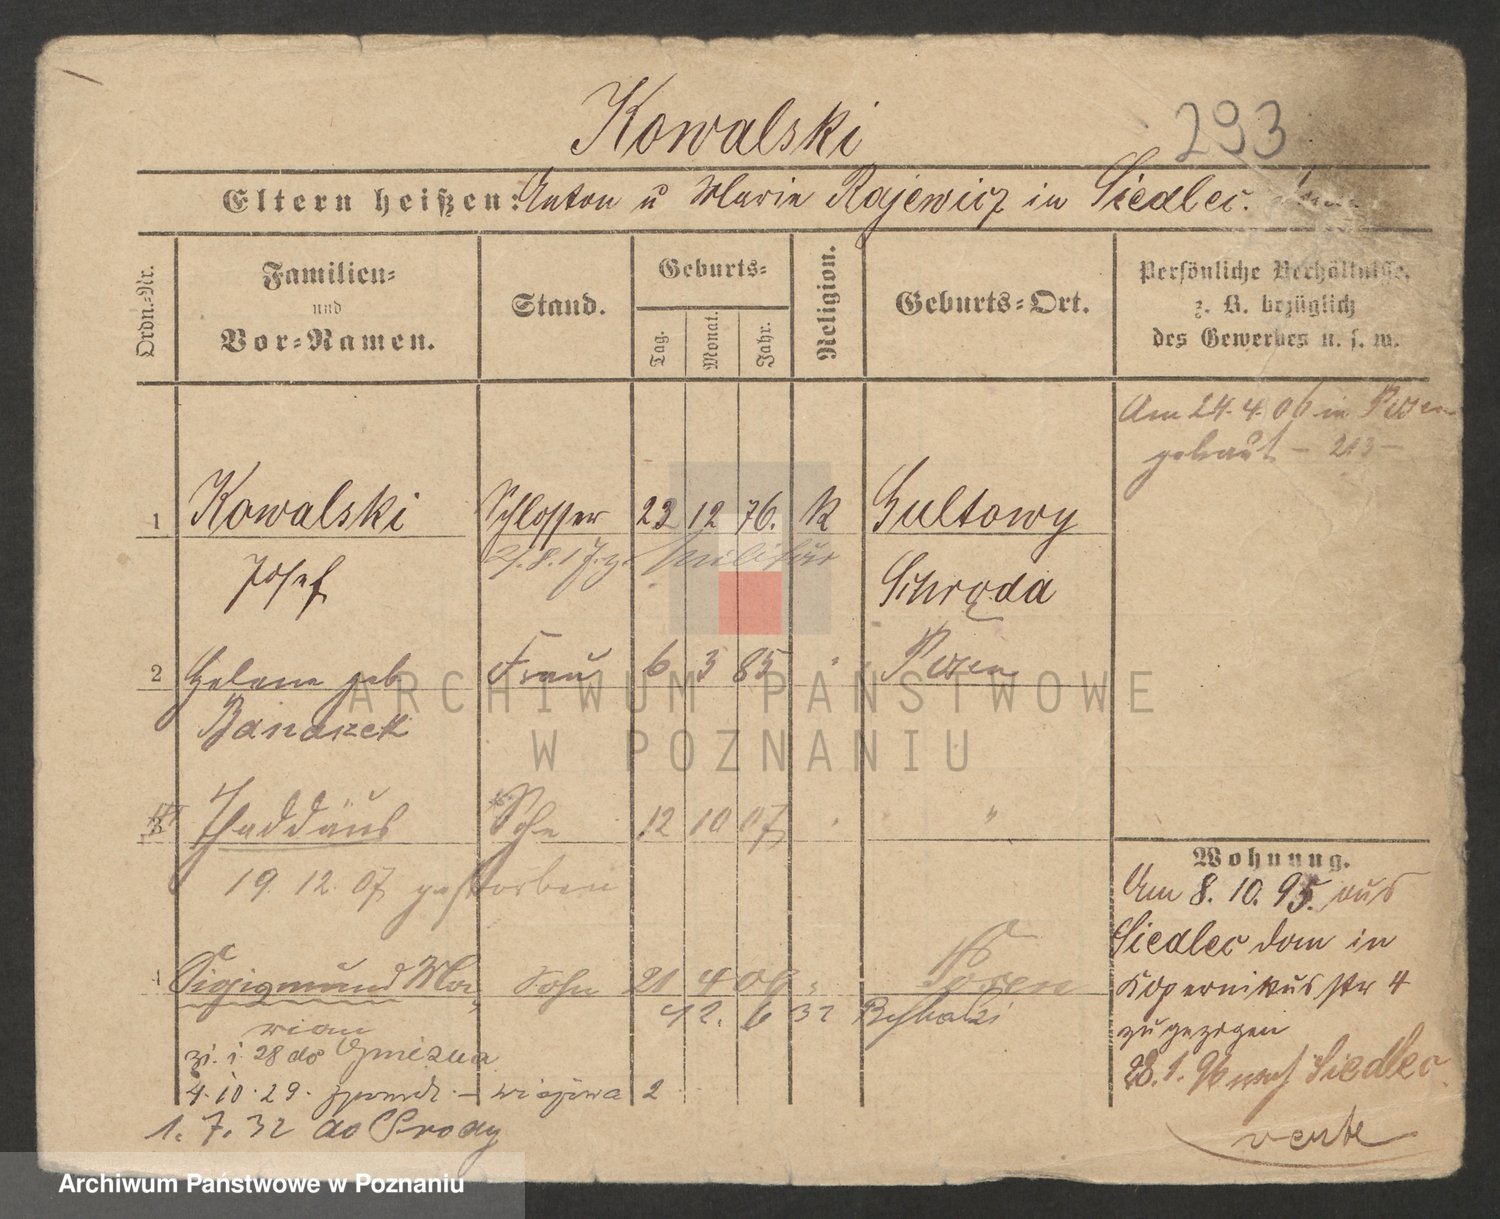 Kowalski
293
Eltern heißen: Anton u Marie Rajewicz in Siedlec.
Ordn.-Nr.
Familien- und Vor-Namen.
Stand.
Geburts-
Tag.
Monat.
Jahr.
Religion.
Geburts-Ort.
Persönliche Verhältnisse,
z. B. bezüglich
des Gewerbes u. s. w.
Am 24. 4. 06 in Posen
getraut – 213 –
1 Kowalski Schlosser 23 12 76. K Gultowy
Josef Schroda
Militär
2 Helene geb Frau 6 3 85 " Posen
Banaszek
3 Thaddäus Sohn 12 10 07 " "
19. 12. 07 gestorben
4 Sigismund Ma- Sohn 21 4 09 " Posen
rian
12. 6 32
28 do Gniezna
4. 10. 29.
1. 7. 32 do Środy
Wohnung.
Am 8. 10. 95. aus
Siedlec dom in
Kopernikusstr 4
zugezogen
28. 1. 96 nach Siedlec
verte
ARCHIWUM PAŃSTWOWE
W POZNANIU
Archiwum Państwowe w Poznaniu